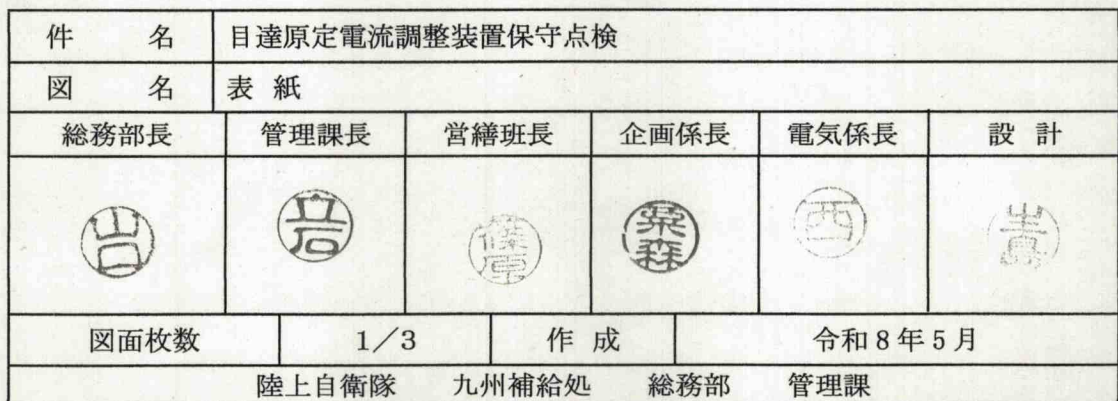 件名 目達原定電流調整装置保守点検
図名 表紙
総務部長 管理課長 営繕班長 企画係長 電気係長 設計
山口 立石 篠原 粟森 西
図面枚数 1/3 作成 令和8年5月
陸上自衛隊 九州補給処 総務部 管理課